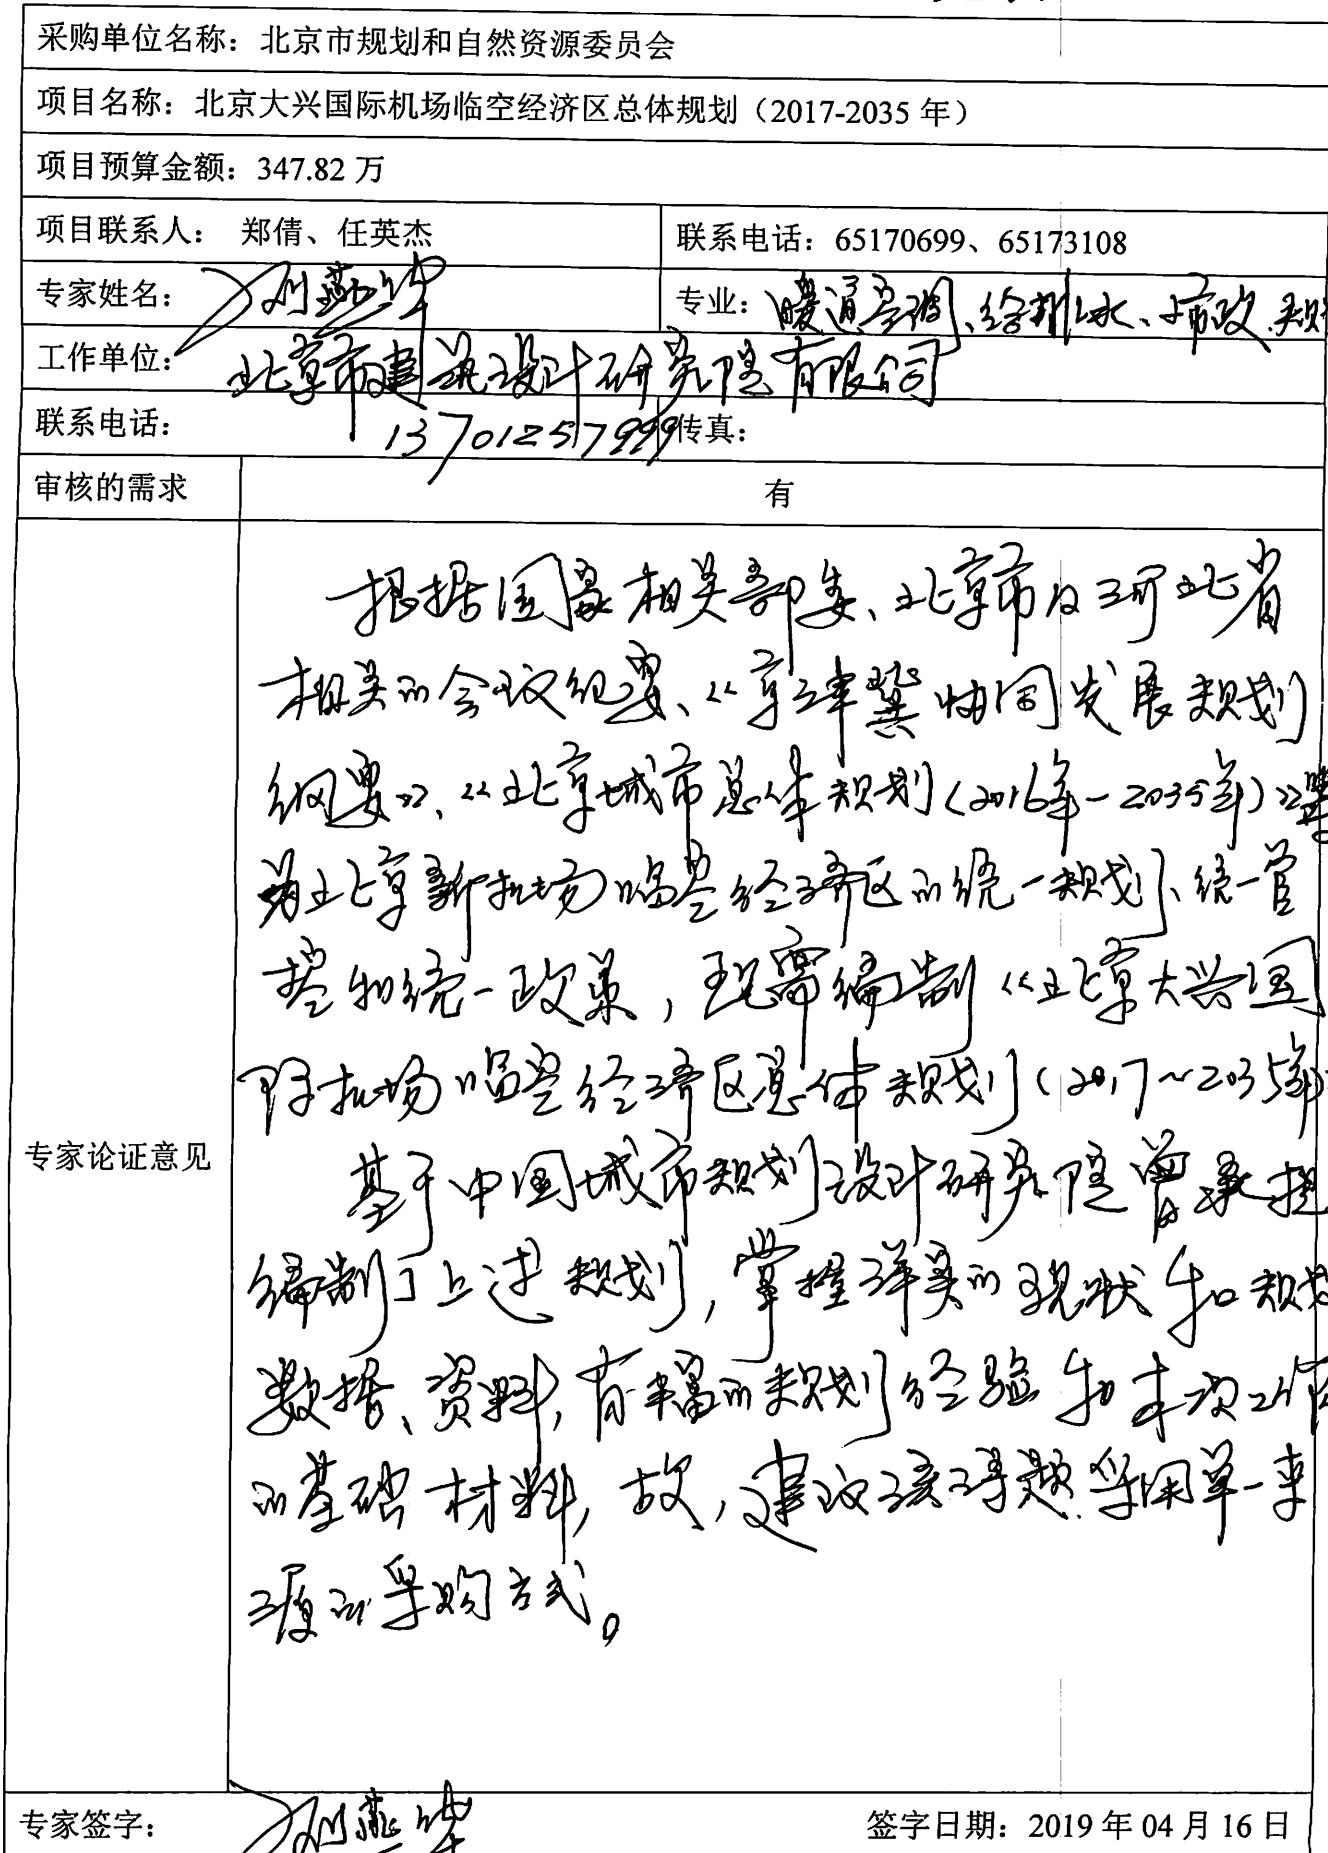 采购单位名称：北京市规划和自然资源委员会
项目名称：北京大兴国际机场临空经济区总体规划（2017-2035 年）
项目预算金额：347.82 万
项目联系人： 郑倩、任英杰 联系电话：65170699、65173108
专家姓名： 刘燕华 专业：暖通空调、给排水、市政、规
工作单位： 北京市建筑设计研究院有限公司
联系电话： 13701257999 传真：
审核的需求 有
根据国家相关部委、北京市及河北省
相关的会议纪要、《京津冀协同发展规划
纲要》、《北京城市总体规划（2016年-2035年）》等
为北京新机场临空经济区的统一规划、统一管
控和统一政策，现需编制《北京大兴国
际机场临空经济区总体规划（2017～2035年）
专家论证意见
基于中国城市规划设计研究院曾承担
编制了上述规划，掌握详实的现状和规划
数据、资料，有丰富的规划经验和本次工作
的基础材料，故，建议该课题采用单一来
源的采购方式。
专家签字： 刘燕华 签字日期：2019 年 04 月 16 日